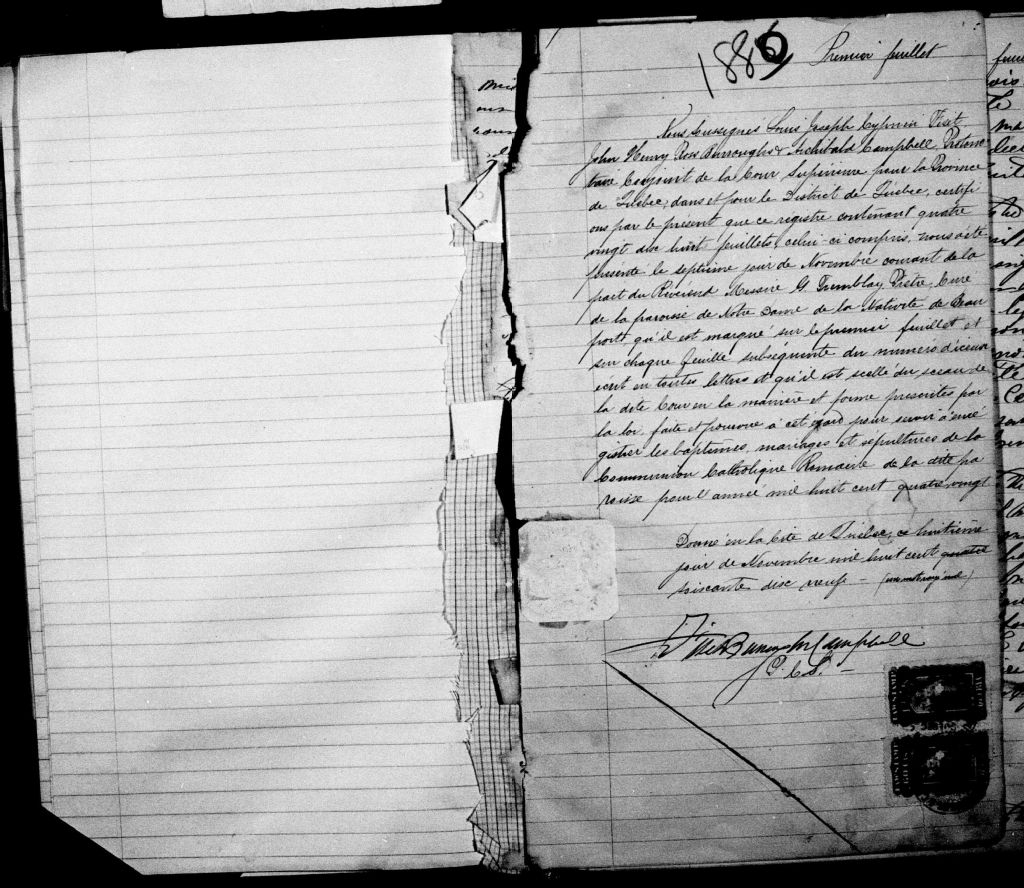 1880
Premier feuillet
Nous Soussignés Louis Joseph Cyprien Fiset
John Henry Ross Burroughs & Archibald Campbell Protono
taire Conjoint de la Cour Supérieure pour la Province
de Québec, dans et pour le District de Québec, certifi
ons par le présent que ce registre contenant quatre
vingt dix huit feuillets, celui ci compris, nous a été
présenté le septième jour de Novembre courant de la
part du Révérend Messire G. Tremblay, Ptre, Curé
de la paroisse de Notre Dame de la Nativité de Beau
port, qu'il est marqué sur le premier feuillet et
sur chaque feuille subséquente du numéro d'iceux
écrit en toutes lettres et qu'il est scellé du sceau de
la dite Cour en la manière et forme prescrites par
la loi, faite et pourvue à cet égard pour servir à enré
gistrer les baptêmes, mariages et sépultures de la
Communion Catholique Romaine de la dite pa
roisse pour l'année mil huit cent quatre vingt
Donné en la Cité de Québec, ce huitième
jour de Novembre mil huit cent quatre
soiscante disc neuf —
Fiset Burroughs Campbell
P. C. S. —